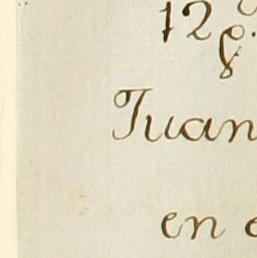 12
Juan
en